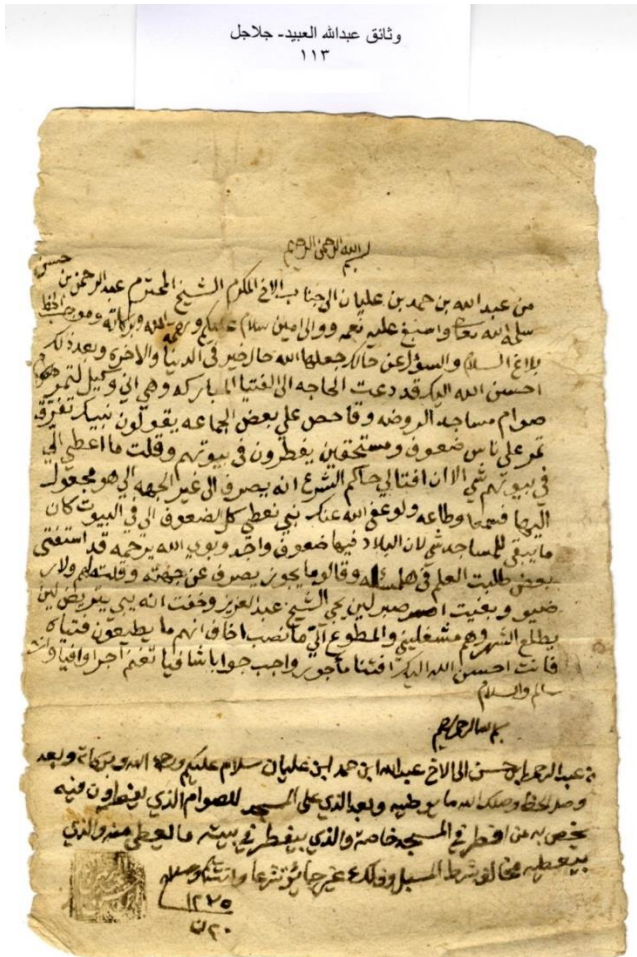 وثائق عبدالله العبيد- جلاجل
١١٣
بسم الله الرحمن الرحيم
من عبد الله بن حمد بن عليان الى جناب الاخ المكرم الشيخ المحترم عبد الرحمن بن حسن
سلمه الله تعا واسبغ عليه نعمه ووالى امين سلام عليكم ورحمة الله وبركاته وموجب الخط
بلاغ السلام والسؤل عن حالك جعلها الله حال خير في الدنيا والاخره وبعد ذلك
احسن الله اليك قد دعت الحاجه الى الفتيا المباركه وهي اني وكيل لتمر
صوام مساجد الروضه وقا حص علي بعض الجماعه يقولون نبيك تفرق
تمر على ناس ضعوف ومستحقين يفطرون في بيوتهم وقلت ما اعطي الي
في بيوتهم شي الا ان افتا لي حاكم الشرع انه يصرف الى غير الجهه الي هو مجعول
اليها فسمعا وطاعه ولو عفى الله عنك نبي نعطي كل الضعوف الي في البيوت كان
ما يبقى للمساجد شي لان البلاد فيها ضعوف واجد وبوي الله يرحمه قد استفتى
بعض طلبت العلم في هلمسئله وقالو ما يجوز يصرف عن جهته وقلت لهم
وبغيت اصبر لين يجي الشيخ عبد العزيز وخفت انه يبي لين
يطلع الشهر وهم مشغليني والمطوع الي ما نصب اخاف انهم ما يطيعون فتياه
فانت احسن الله اليك افتنا مأجور واجب جوابا شافيا تغنم آجرا وافيا وانت
سالم والسلام
بسم الله الرحمن الرحيم
من عبد الرحمن ابن حسن الى الاخ عبد الله ابن حمد ابن عليان سلام عليكم ورحمة الله وبركاته وبعد
وصل الخط وصلك الله ما يرضيه وبعد الذي على المسجد للصوام الذي يفطرون فيه
يخص به من افطر في المسجد خاصة والذي يفطر في بيته ما يعطى منه والذي
يعطيه مخالف شرط المسبل وذلك غير جايز شرعا وانت سالم والسلام
١٢٧٥
٢٠ ن